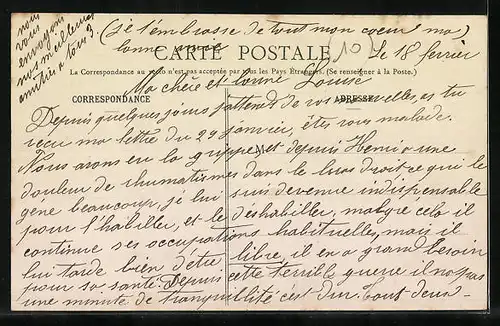 (Je t'embrasse de tout mon coeur ma
bonne amie
nous
vous
envoyons
nos meilleures
amitiés à tous 3.
CARTE POSTALE
10
Le 18 février
La Correspondance au recto n'est pas acceptée par tous les Pays Étrangers. (Se renseigner à la Poste.)
Ma chère et bonne Louise
CORRESPONDANCE
ADRESSE
Depuis quelques jours j'attends de vos nouvelles, as tu
reçu ma lettre du 29 Janvier, êtes vous malade.
M
Nous avons eu la grippe et depuis Henri a une
douleur de rhumatismes dans le bras droit ce qui le
gêne beaucoup, je lui suis devenue indispensable
pour l'habiller, et le déshabiller, malgré cela il
continue ses occupations habituelles, mais il
lui tarde bien d'être libre, il en a grand besoin
pour sa santé. Depuis cette terrible guerre il n'a pas
une minute de tranquillité c'est dur. Tout deux-